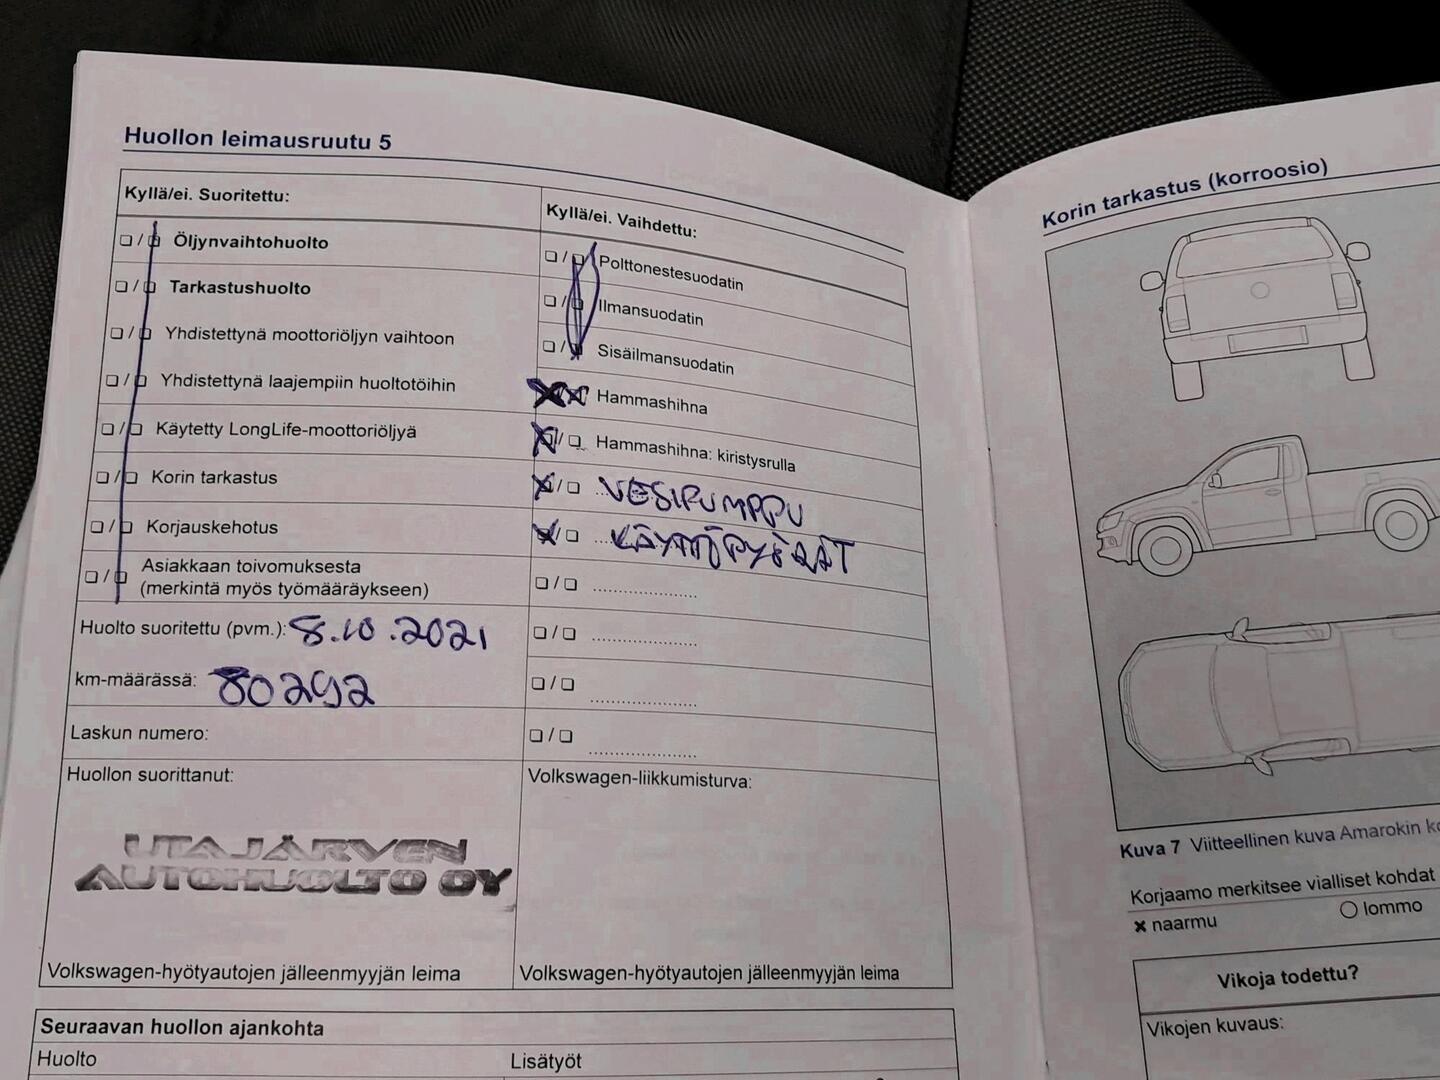 Huollon leimausruutu 5
Kyllä/ei. Suoritettu:
❏ / ❏ Öljynvaihtohuolto
❏ / ❏ Tarkastushuolto
❏ / ❏ Yhdistettynä moottoriöljyn vaihtoon
❏ / ❏ Yhdistettynä laajempiin huoltotöihin
❏ / ❏ Käytetty LongLife-moottoriöljyä
❏ / ❏ Korin tarkastus
❏ / ❏ Korjauskehotus
❏ / ❏ Asiakkaan toivomuksesta
(merkintä myös työmääräykseen)
Huolto suoritettu (pvm.): 8.10.2021
km-määrässä: 80292
Laskun numero:
Huollon suorittanut:
UTAJÄRVEN
AUTOHUOLTO OY
Volkswagen-hyötyautojen jälleenmyyjän leima
Kyllä/ei. Vaihdettu:
❏ / ❏ Polttonestesuodatin
❏ / ❏ Ilmansuodatin
❏ / ❏ Sisäilmansuodatin
Hammashihna
❏ / ❏ Hammashihna: kiristysrulla
❏ / ❏ VESIPUMPPU
❏ / ❏ KÄYTTÖPYÖRÄT
❏ / ❏ ......................
❏ / ❏ ......................
❏ / ❏ ......................
❏ / ❏ ......................
Volkswagen-liikkumisturva:
Volkswagen-hyötyautojen jälleenmyyjän leima
Seuraavan huollon ajankohta
Huolto
Lisätyöt
Korin tarkastus (korroosio)
Kuva 7 Viitteellinen kuva Amarokin
Korjaamo merkitsee vialliset kohdat
× naarmu
○ lommo
Vikoja todettu?
Vikojen kuvaus: